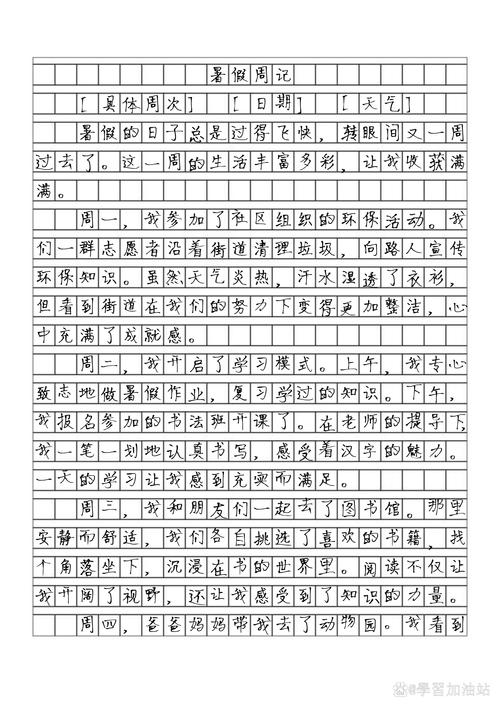 暑假周记
[具体周次] [日期] [天气]
暑假的日子总是过得飞快，转眼间又一周
过去了。这一周的生活丰富多彩，让我收获满
满。
周一，我参加了社区组织的环保活动。我
们一群志愿者沿着街道清理垃圾，向路人宣传
环保知识。虽然天气炎热，汗水湿透了衣衫，
但看到街道在我们的努力下变得更加整洁，心
中充满了成就感。
周二，我开启了学习模式。上午，我专心
致志地做暑假作业，复习学过的知识。下午，
我报名参加的书法班开课了。在老师的指导下，
我一笔一划地认真书写，感受着汉字的魅力。
一天的学习让我感到充实而满足。
周三，我和朋友们一起去了图书馆。那里
安静而舒适，我们各自挑选了喜欢的书籍，找
个角落坐下，沉浸在书的世界里。阅读不仅让
我开阔了视野，还让我感受到了知识的力量。
周四，爸爸妈妈带我去了动物园。我看到
@學習加油站